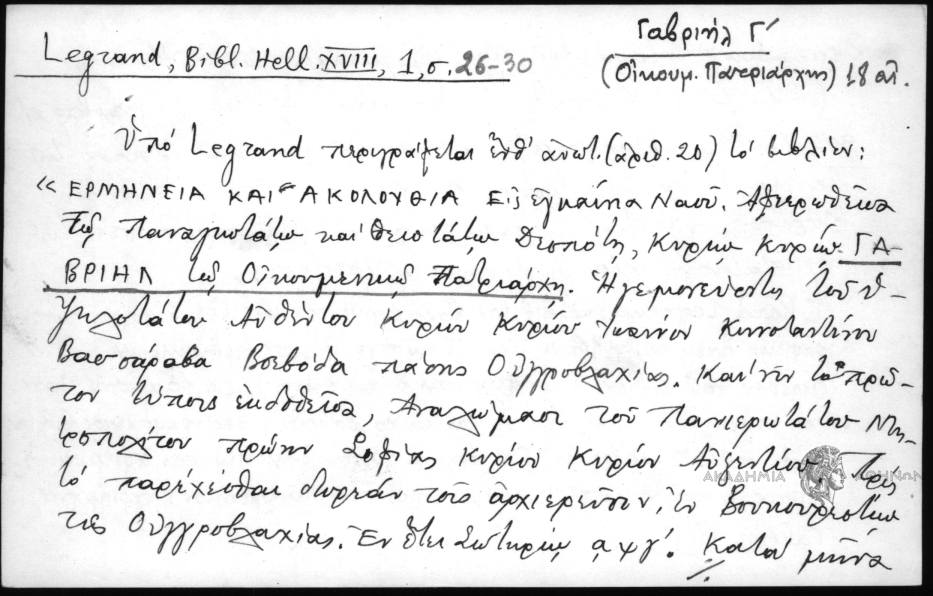 Legrand, Bibl. Hell. XVIII, 1, σ. 26-30
Γαβριήλ Γ´
(Οἰκουμ. Πατριάρχης) 18 αἰ.
Ὑπό Legrand περιγράφεται ἐνθ' ἀνωτ. (ἀριθ. 20) τό βιβλίον:
« ΕΡΜΗΝΕΙΑ ΚΑΙ ΑΚΟΛΟΥΘΙΑ Εἰς ἐγκαίνια Ναοῦ. Ἀφιερωθεῖσα
τῷ Παναγιωτάτῳ καί Θειοτάτῳ Δεσπότῃ, Κυρίῳ Κυρίῳ ΓΑ-
ΒΡΙΗΛ τῷ Οἰκουμενικῷ Πατριάρχῃ. Ἡγεμονεύοντος τοῦ ὑ-
ψηλοτάτου Αὐθέντου Κυρίου Κυρίου Ἰωάννου Κωνσταντίνου
Βασσαράβα Βοεβόδα πάσης Οὐγγροβλαχίας. Καί νῦν τό πρῶ-
τον τύποις ἐκδοθεῖσα, Ἀναλώμασι τοῦ Πανιερωτάτου Μη-
τροπολίτου πρώην Σοφίας Κυρίου Κυρίου Αὐξεντίου. Πρός
τό παρέχεσθαι δωρεάν τοῖς ἀρχιερεῦσιν, ἐν Βουκουρεστίῳ
τῆς Οὐγγροβλαχίας. Ἐν ἔτει Σωτηρίῳ αψγ´. Κατά μῆνα
ΑΚΑΔΗΜΙΑ ΑΘΗΝΩΝ